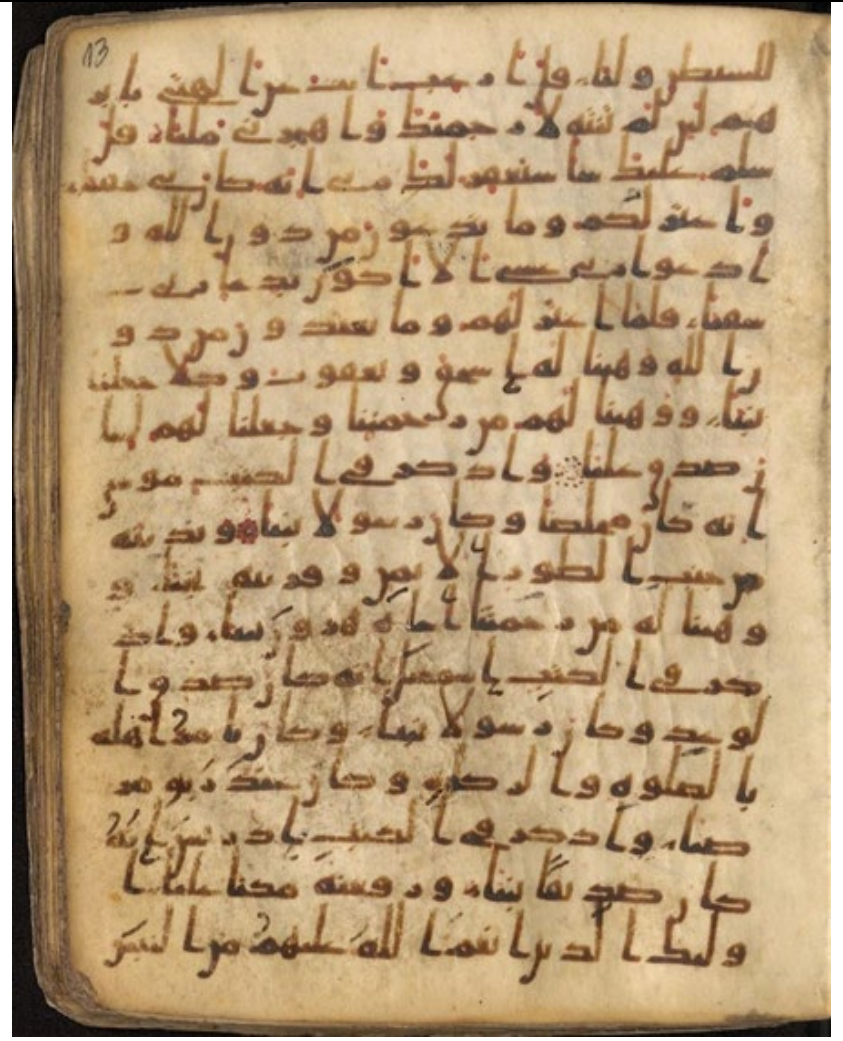 للشيطن وليا قل اراغب انت عن الهتي يابر
هيم لئن لم تنته لارجمنك واهجرني مليا قل
سلم عليك ساستغفر لك ربي انه كان بي حفيا
واعتزلكم وما تدعون من دون الله و
ادعوا ربي عسى الا اكون بدعا ربي
شقيا فلما اعتزلهم وما يعبدون من دو
ن الله وهبنا له اسحق ويعقوب وكلا جعلنا
نبيا ووهبنا لهم من رحمتنا وجعلنا لهم لسا
ن صدق عليا واذكر في الكتب موسى
انه كان مخلصا وكان رسولا نبيا وندينه
من جنب الطور الايمن وقربنه نجيا و
وهبنا له من رحمتنا اخاه هرون نبيا واذ
كر في الكتب اسمعيل انه كان صدق ا
لوعد وكان رسولا نبيا وكان يامر اهله
بالصلوة والزكوة وكان عند ربه مر
ضيا واذكر في الكتب ادريس انه
كان صديقا نبيا ورفعنه مكنا عليا ا
وليك الذين انعم الله عليهم من النبين
13